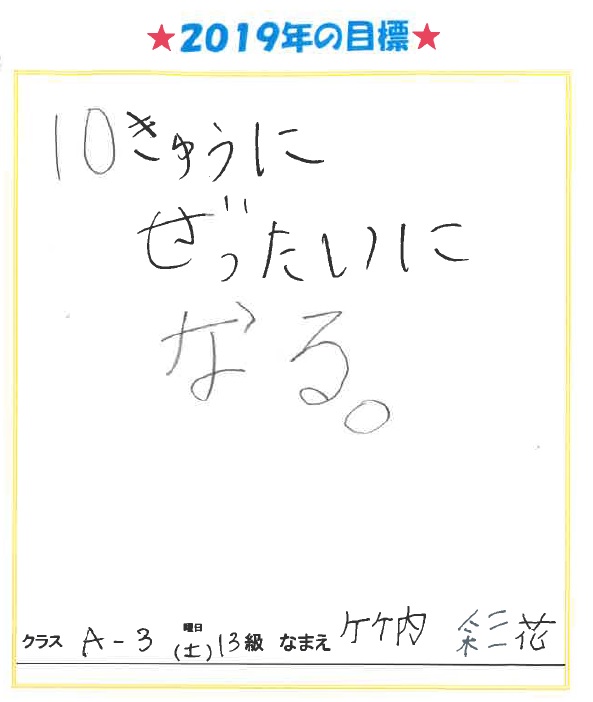 ★2019年の目標★
10きゅうに
ぜったいに
なる。
クラス A-3 曜日(土) 13級 なまえ 竹内 彩花